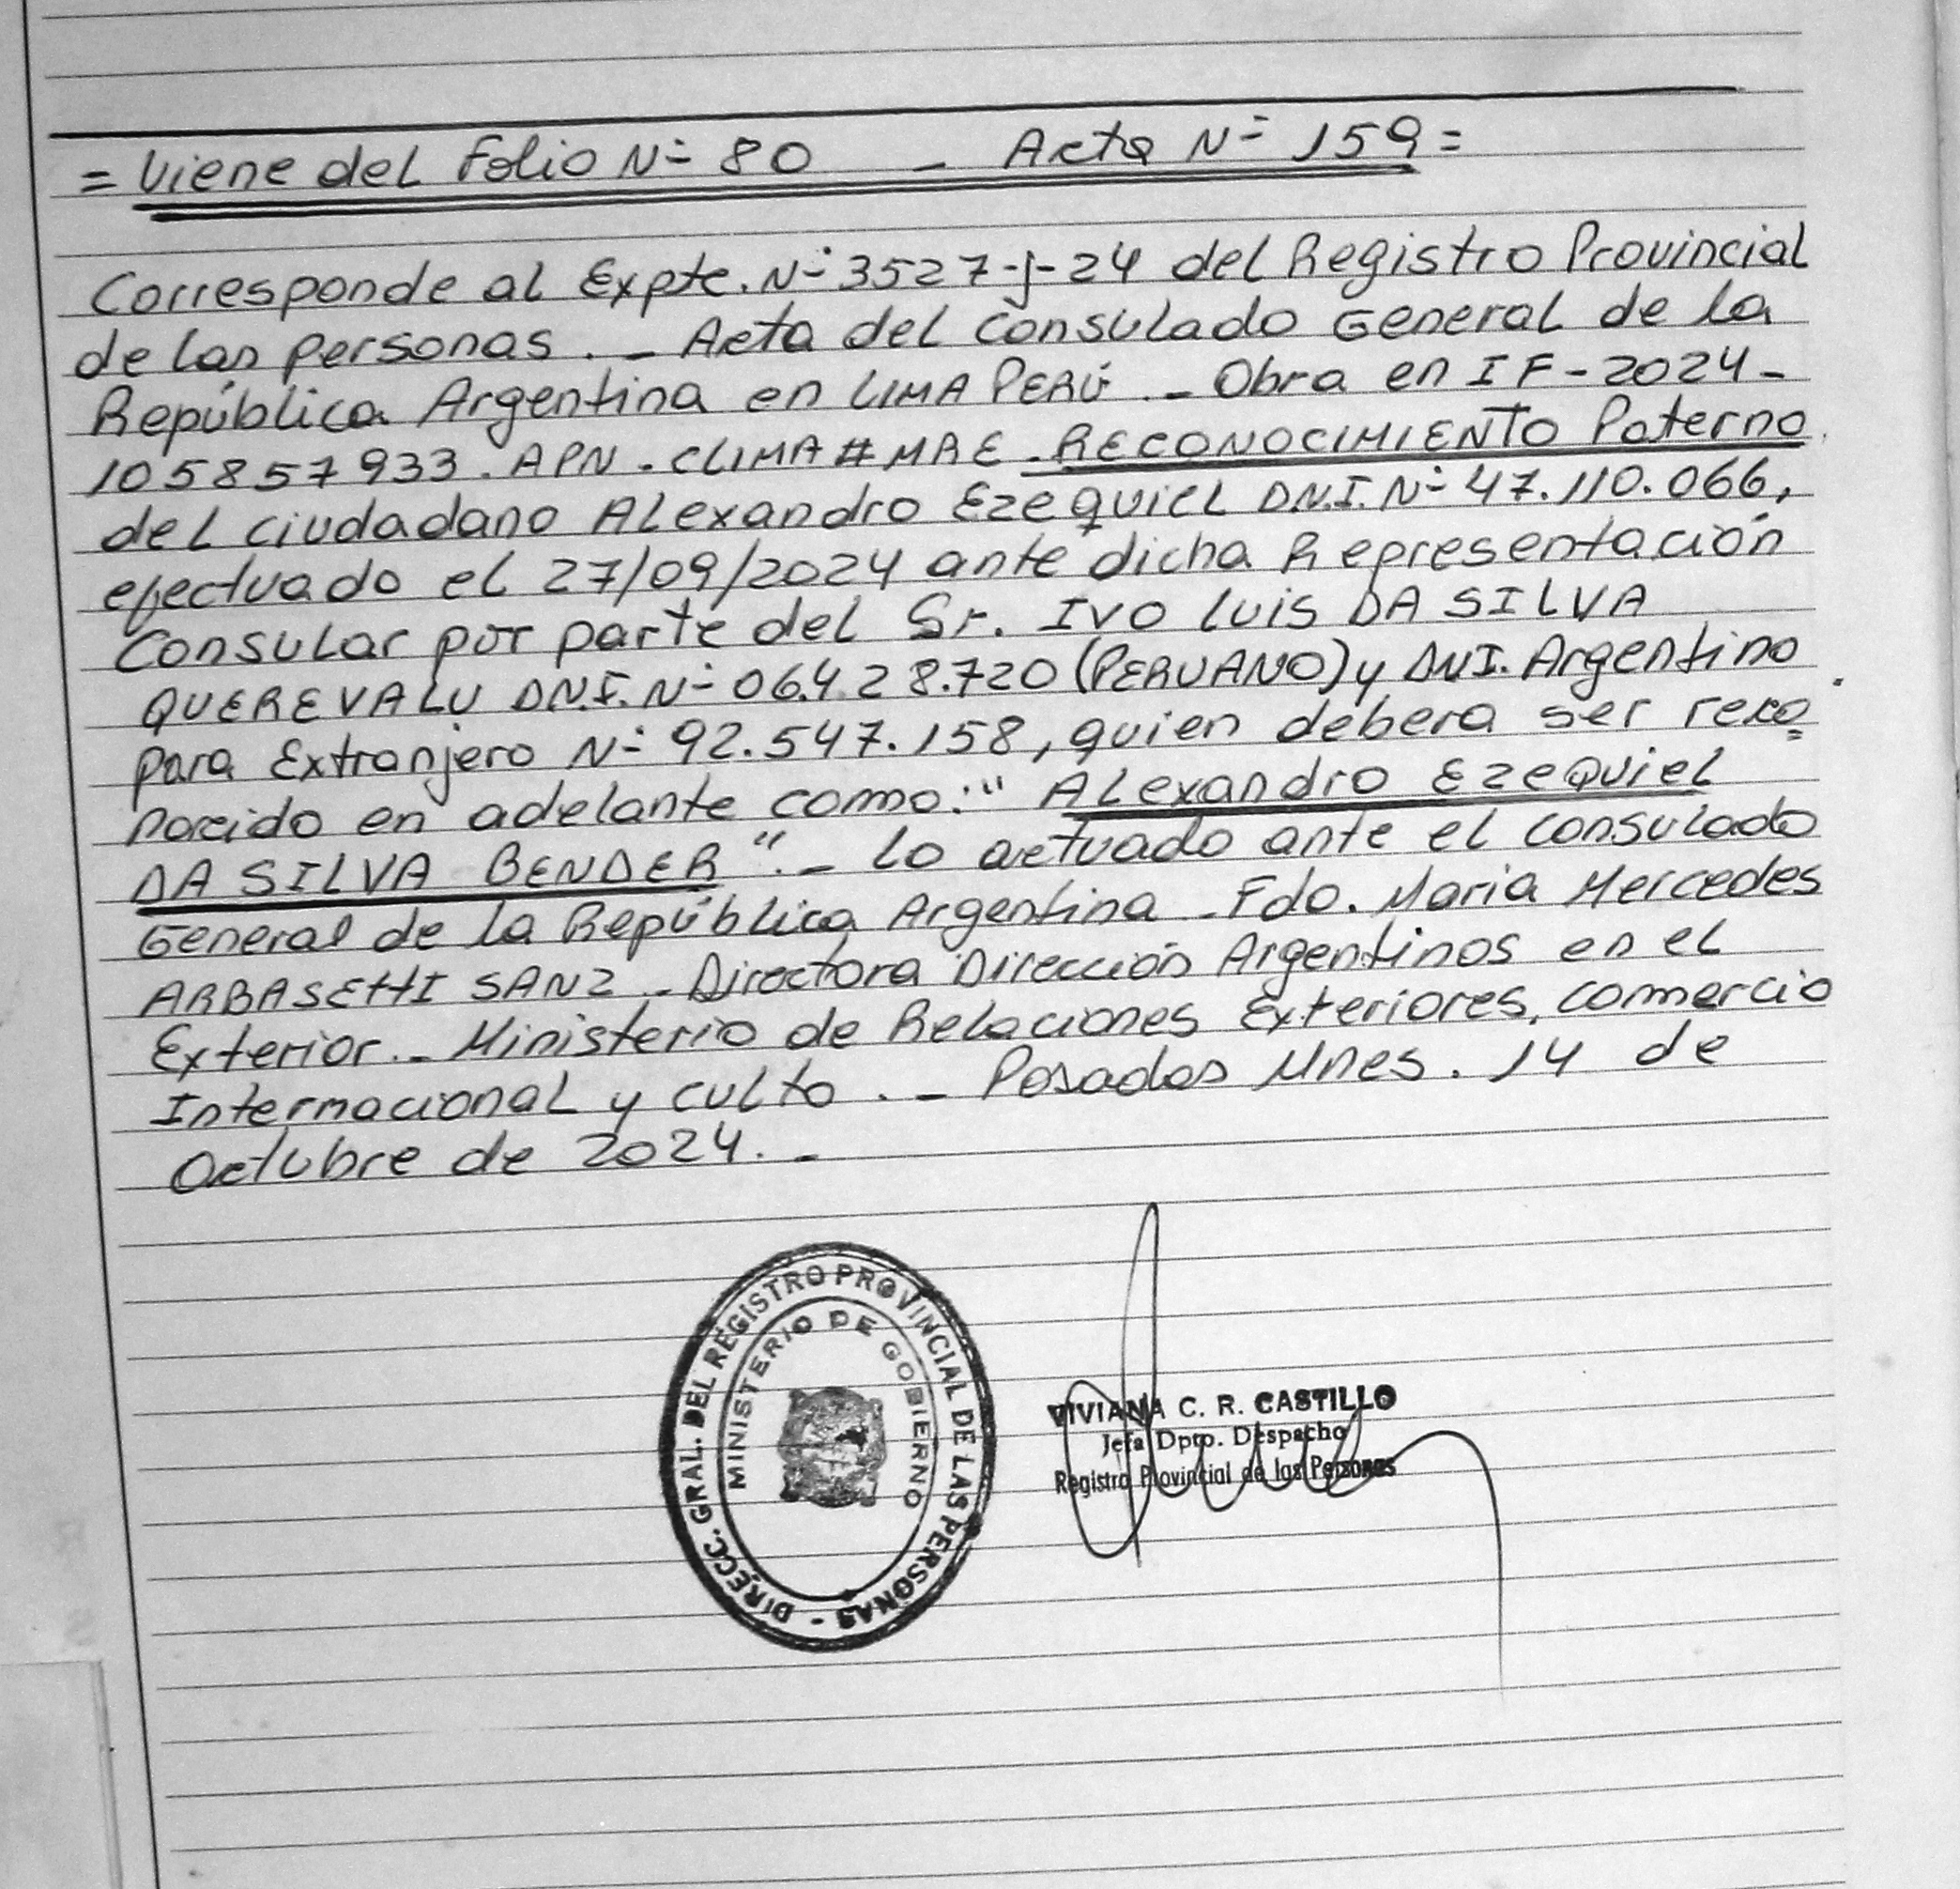 = Viene del Folio Nº 80 - Acta Nº 159 =
Corresponde al Expte. Nº 3527-J-24 del Registro Provincial
de las personas. - Acta del Consulado General de la
República Argentina en LIMA PERÚ. - Obra en IF-2024-
105857933. APN. CLIMA#MRE. RECONOCIMIENTO Paterno
del ciudadano Alexandro Ezequiel D.N.I. Nº 47.110.066,
efectuado el 27/09/2024 ante dicha Representación
Consular por parte del Sr. IVO Luis DA SILVA
QUEREVALU D.N.I. Nº 06.428.720 (PERUANO) y D.N.I. Argentino
para Extranjero Nº 92.547.158, quien debera ser reco=
nocido en adelante como: "Alexandro Ezequiel
DA SILVA BENDER". - Lo actuado ante el consulado
General de la República Argentina - Fdo. Maria Mercedes
ARBASETTI SANZ - Directora Dirección Argentinos en el
Exterior. - Ministerio de Relaciones Exteriores, comercio
Internacional y culto. - Posadas Mnes. 14 de
Octubre de 2024. -
DIRECC. GRAL. DEL REGISTRO PROVINCIAL DE LAS PERSONAS -
MINISTERIO DE GOBIERNO
VIVIANA C. R. CASTILLO
Jefa Dpto. Despacho
Registro Provincial de las Personas